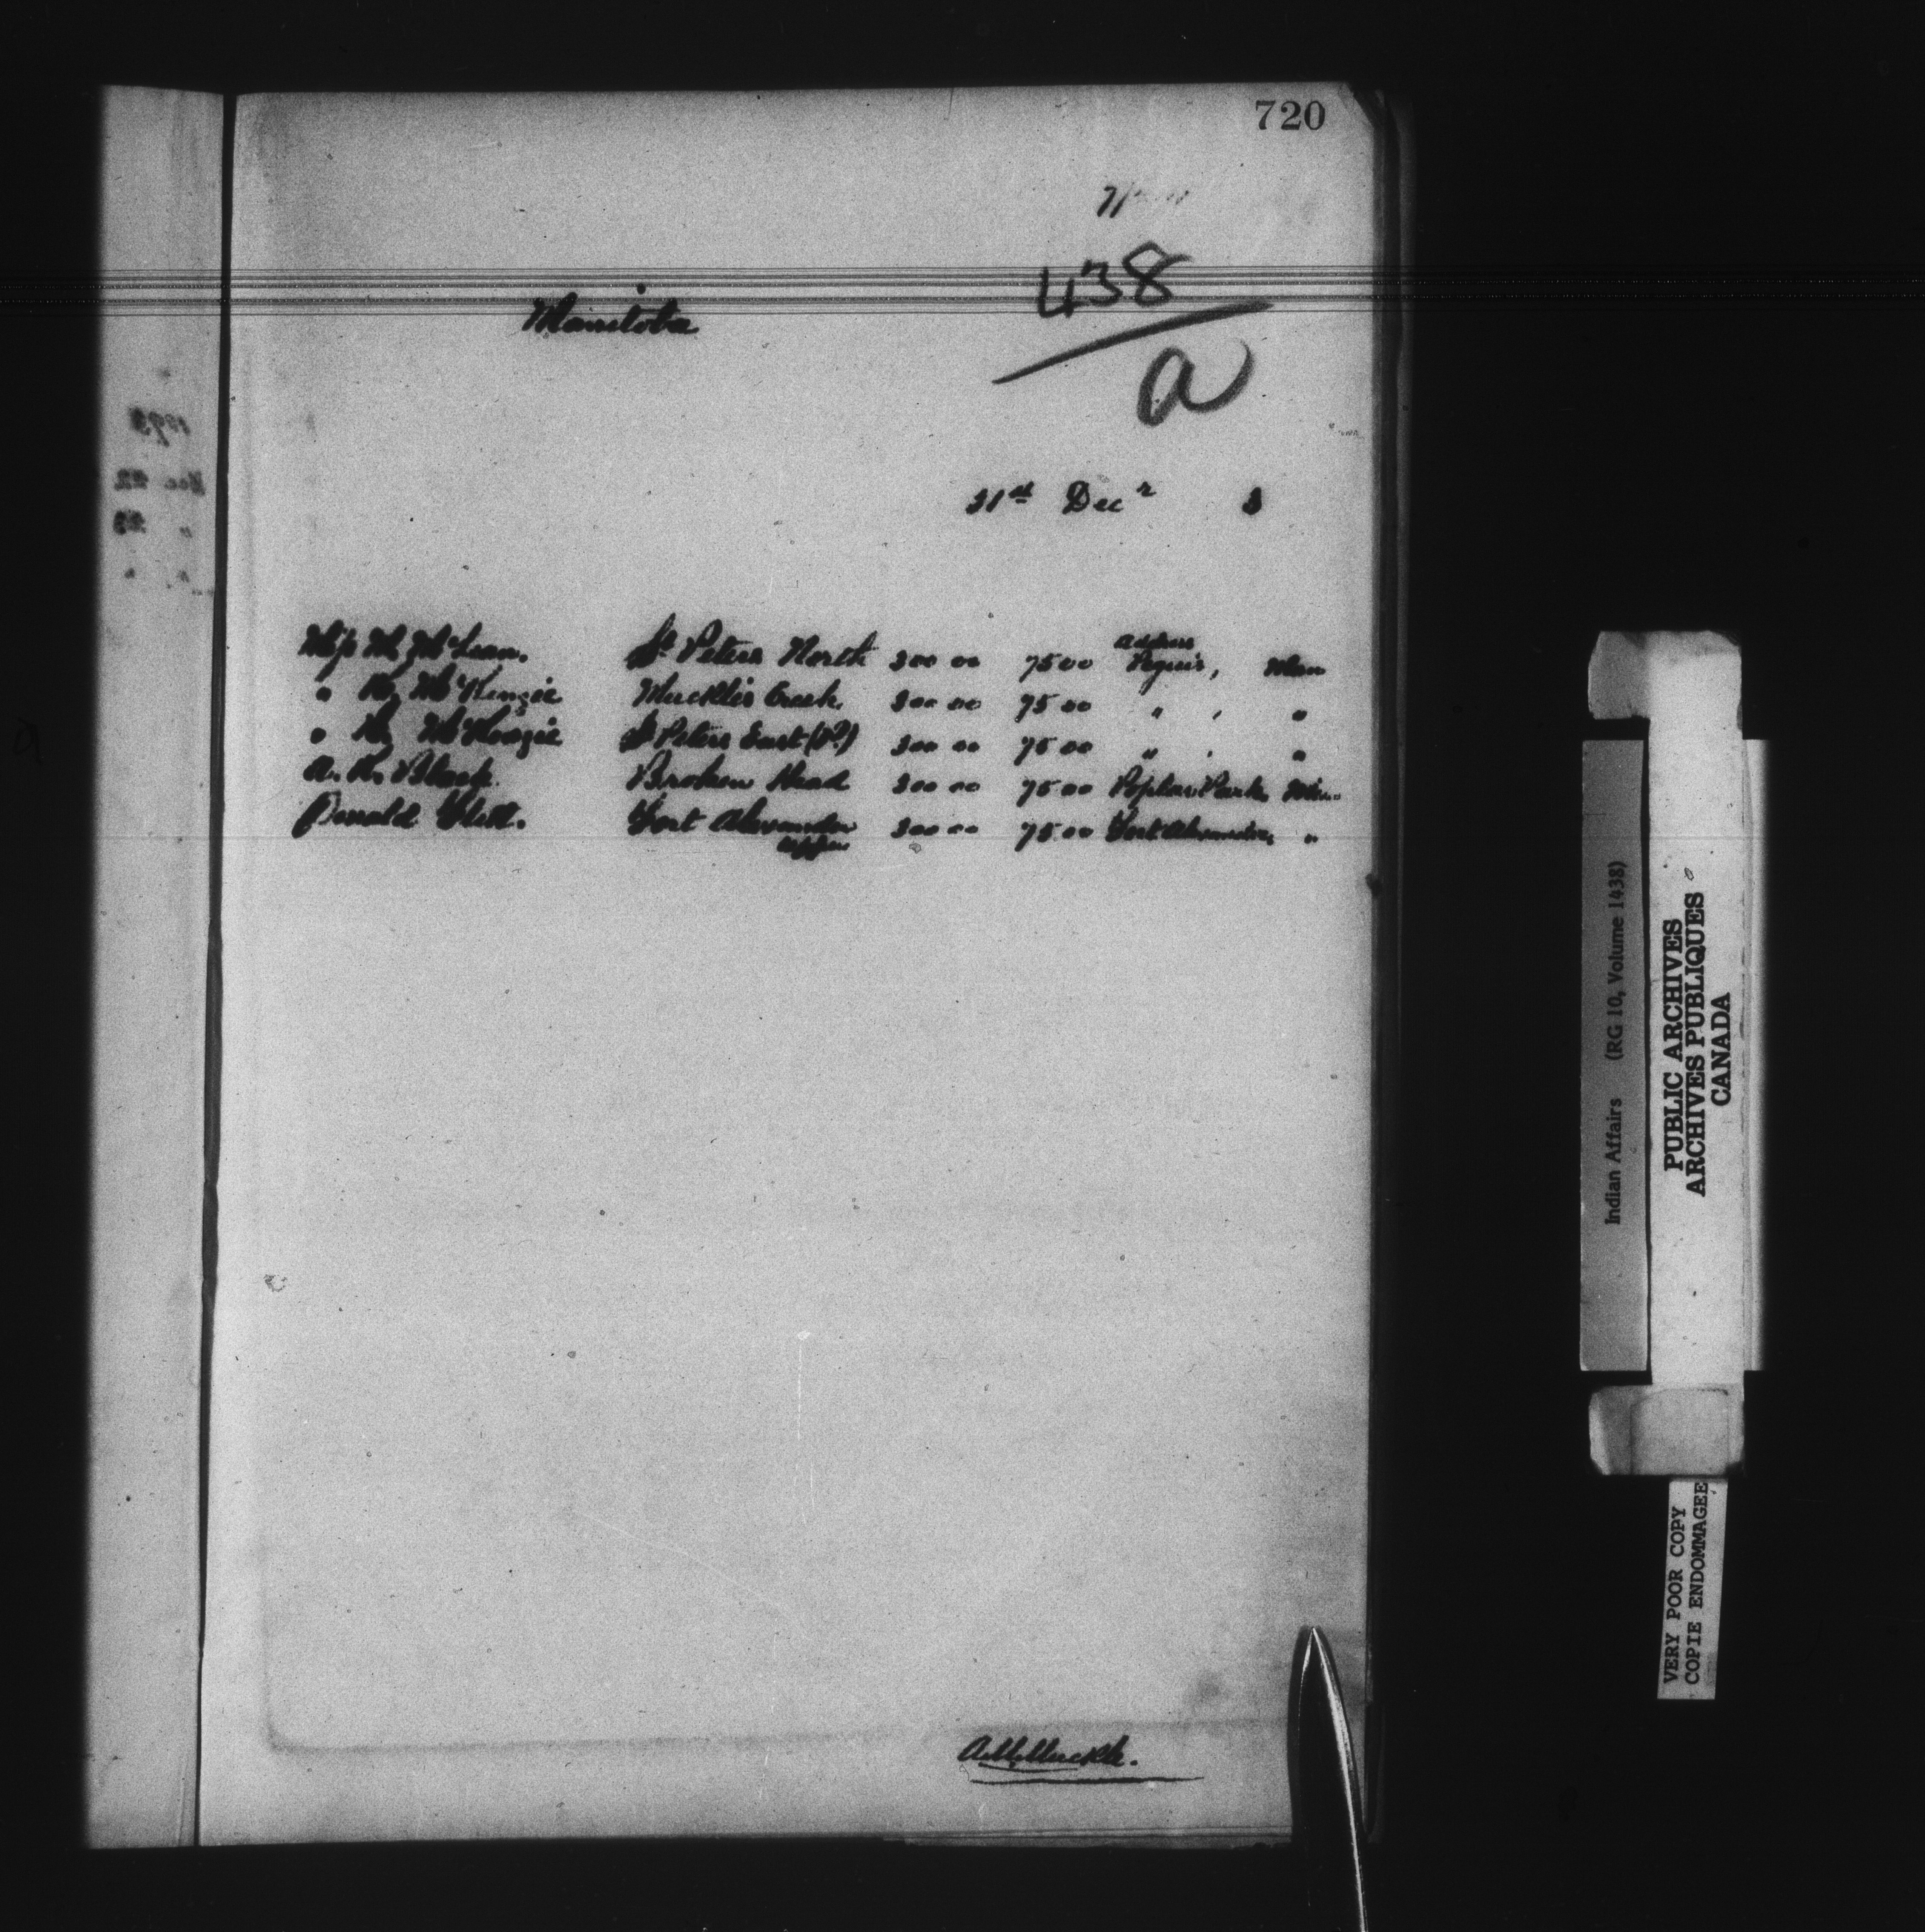 720
438
a
Manitoba
31st Decr 3
Address
Miss M. McLean. St Peters North 300 00 75 00 Peguis, Man
" McKenzie Muckle's Creek. 300 00 75 00 " , "
" McKenzie St Peters East (P?) 300 00 75 00 " , "
A. K. Black. Broken Head 300 00 75 00 Poplar Park Man
Donald Flett. Fort Alexander 300 00 75 00 Fort Alexander, "
upper
A. M. Muckle.
1893
Dec 22
" 23
Indian Affairs (RG 10, Volume 1438)
PUBLIC ARCHIVES
ARCHIVES PUBLIQUES
CANADA
VERY POOR COPY
COPIE ENDOMMAGEE